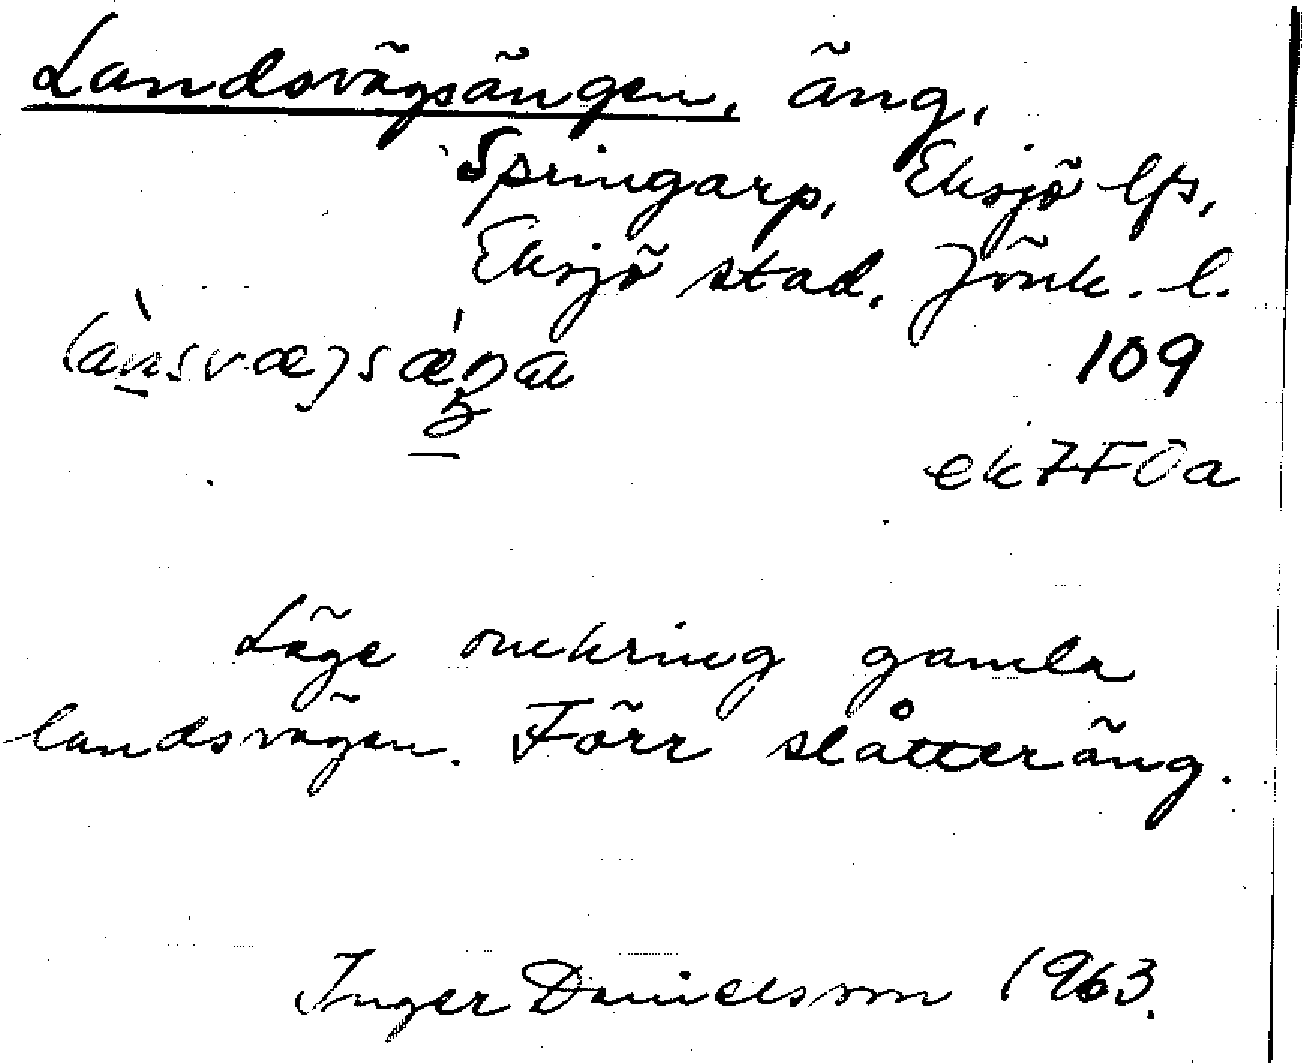 Landsvägsängen, äng,
Springarp, Eksjö lfs,
Eksjö stad, Jönk. l.
109
ek7F0a
Läge omkring gamla
landsvägen. Förr slåtteräng.
Inger Danielsson 1963.